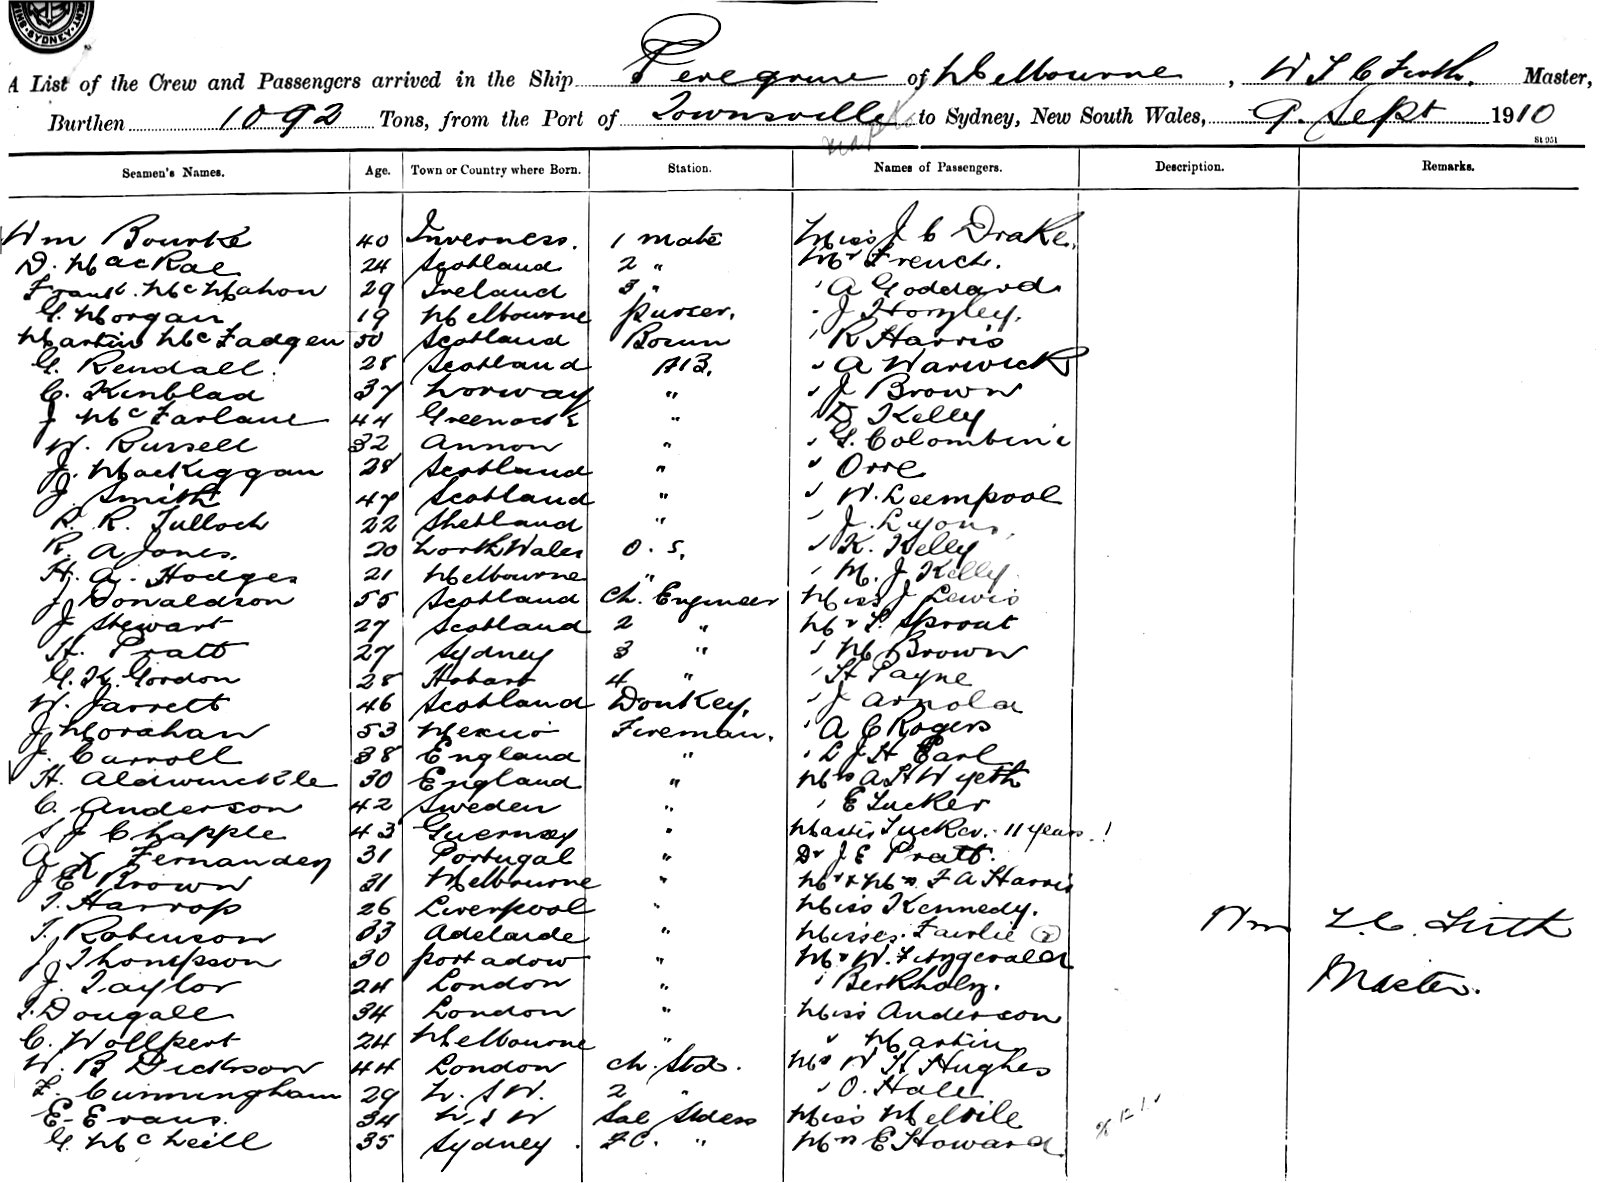 SYDNEY
A List of the Crew and Passengers arrived in the Ship Peregrine of Melbourne, W T C Firth. Master,
Burthen 1092 Tons, from the Port of Townsville to Sydney, New South Wales, 9. Sept 1910
St 951
Seamen's Names. Age. Town or Country where Born. Station. Names of Passengers. Description. Remarks.
Wm Bourke 40 Inverness. 1 mate Miss J C Drake.
D. MacRae 24 Scotland 2 " Mr French.
Frank. McMahon 29 Ireland 3 " " A Goddard
G. Morgan 19 Melbourne purser. " J Horsley.
Martin McFadgen 50 Scotland Bosun " R Harris
G. Rendall. 28 Scotland AB. " A Warwick
C. Kinblad 37 Norway " " J Brown
J McFarlane 44 Greenock " " D Kelly
W. Russell 32 Annon " " G. Colombine
J. MacKiggan 28 Scotland " " Orre
J. Smith 47 Scotland " " W. Leempool
P. R. Tulloch 22 Shetland " " J. Lyons
R. A Jones. 20 North Wales O. S. " K. Kelly
H. G. Hodges 21 Melbourne " " M. J Kelly
J Donaldson 55 Scotland Ch. Engineer Miss J Lewis
J Stewart 27 Scotland 2 " Mr T. Sprout
H. Pratt 27 Sydney 3 " " M Brown
G. K. Gordon 28 Hobart 4 " " H Payne
W. Jarrett 46 Scotland Donkey. " J Arnold
J Morahan 53 Mexico Fireman. " A C Rogers
J. Carroll 38 England " " L J H Earl
H. Aldwinckle 30 England " Mrs A H Wyeth
C. Anderson 42 Sweden " " E Tucker
S J Chapple 43 Guernsey " Master Tucker. - 11 years.
A K Fernandez 31 Portugal " Dr J E Pratt.
J E Brown 31 Melbourne " Mr & Mrs F A Harris
T. Harrop 26 Liverpool " Miss Kennedy.
T. Robinson 33 Adelaide " Misses. Fairlie (2) Wm T. C. Firth
J Thompson 30 portadow " Mr W. Fitzgerald
J. Taylor 24 London " " Berkholz. Master.
T. Dougall 34 London " Miss Anderson
C. Wollpert 24 Melbourne " " Martin
W. B Dickson 44 London Ch. Std. Mr W H Hughes
F. Cunningham 29 N. S W. 2 " " O. Hale
E. Evans. 34 N. S W Sal Stdess Miss Melvile
G. McNeill 35 Sydney. F C. " Mrs E Howard.